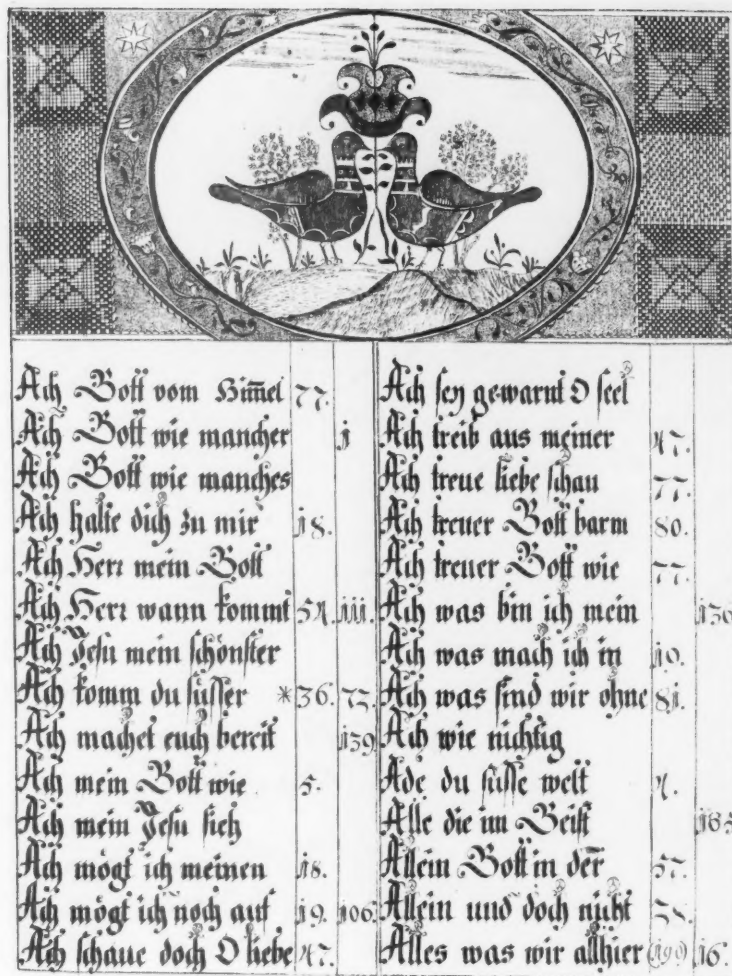 Ach Gott vom Him̅el 77.
Ach Gott wie mancher 1
Ach Gott wie manches
Ach halte dich zu mir 18.
Ach Herr mein Gott
Ach Herr wann kommt 54. 111.
Ach Jesu mein schönster
Ach komm du süsser *36. 72.
Ach machet euch bereit 139
Ach mein Gott wie 5.
Ach mein Jesu sieh
Ach mögt ich meinen 18.
Ach mögt ich noch auf 19. 106.
Ach schaue doch O liebe 47.
Ach sey gewarnt O seel
Ach treib aus meiner 47.
Ach treue liebe schau 77.
Ach treuer Gott barm 80.
Ach treuer Gott wie 77.
Ach was bin ich mein 136
Ach was mach ich in 10.
Ach was sind wir ohne 81.
Ach wie nichtig
Ade du süsse welt 4.
Alle die im Geist
Allein Gott in der 57.
Allein und doch nicht
Alles was wir allhier (190) 16.